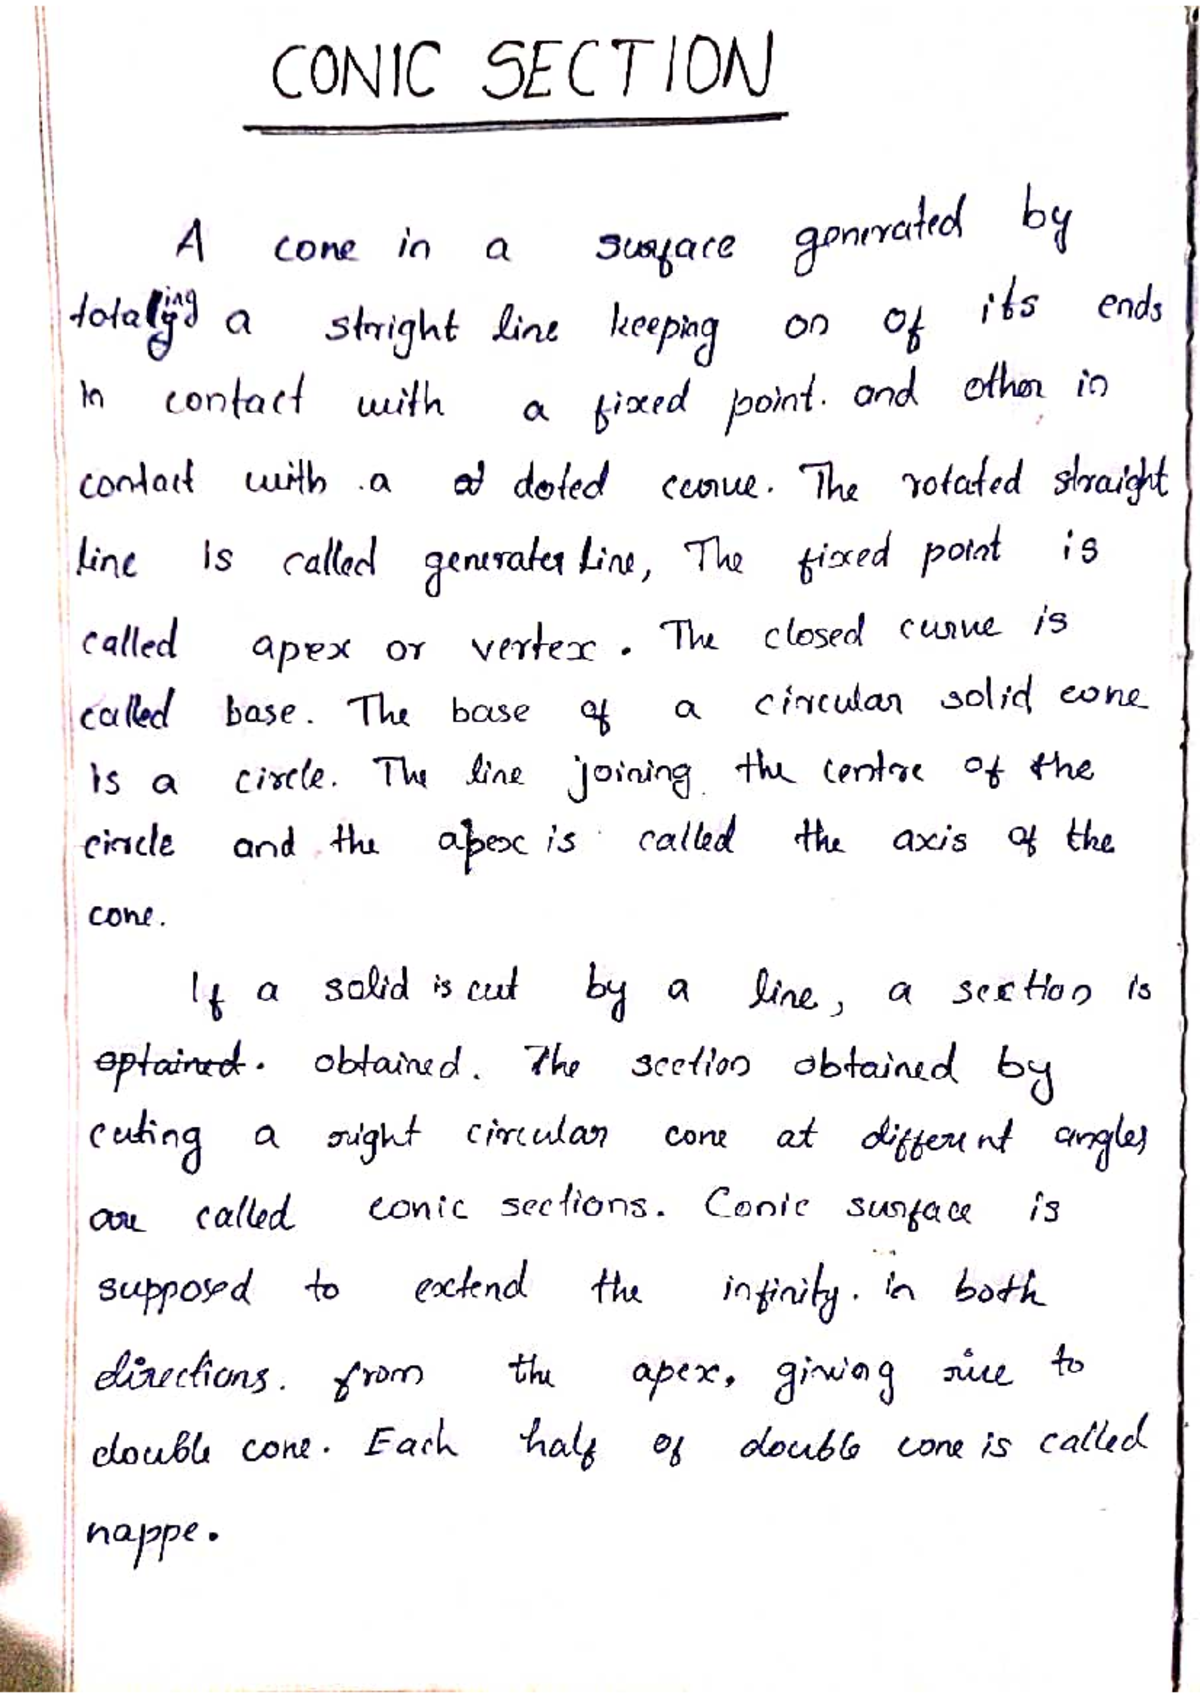 CONIC SECTION
A cone in a surface generated by
a stright line keeping on of its ends
in contact with a fixed point. and other in
contact with a doted curve. The rotated straight
line is called generater line, The fixed point is
called apex or vertex. The closed curve is
called base. The base of a circular solid cone
is a circle. The line joining the centre of the
circle and the apex is called the axis of the
cone.
If a solid is cut by a line, a section is
optained. obtained. The section obtained by
cuting a right circular cone at different angles
are called conic sections. Conic surface is
supposed to extend the infinity. in both
directions. from the apex, giving rise to
double cone. Each half of double cone is called
nappe.